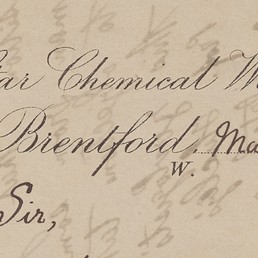 tar Chemical W
Brentford, Ma
W.
Sir,